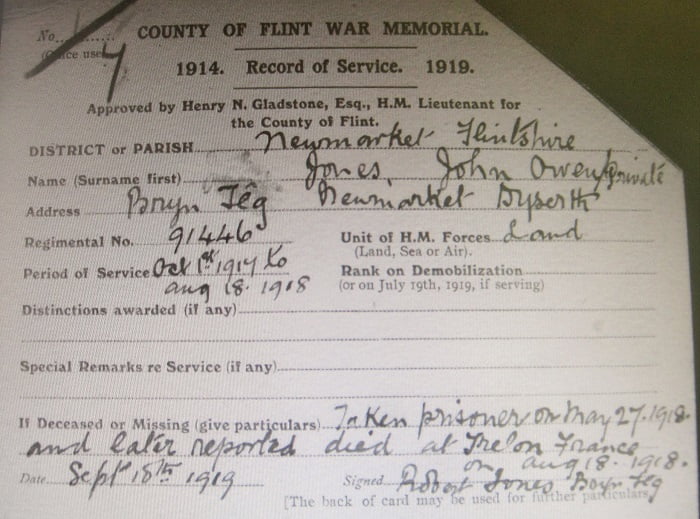 No. ........ COUNTY OF FLINT WAR MEMORIAL.
(Office use)
1914. Record of Service. 1919.
Approved by Henry N. Gladstone, Esq., H.M. Lieutenant for
the County of Flint.
DISTRICT or PARISH Newmarket Flintshire
Name (Surname first) Jones, John Owen, Private
Address Bryn Têg Newmarket Dyserth
Regimental No. 91446 Unit of H.M. Forces Land
(Land, Sea or Air).
Period of Service Oct 1st 1917 to Rank on Demobilization
Aug 18. 1918 (or on July 19th, 1919, if serving)
Distinctions awarded (if any)
Special Remarks re Service (if any)
If Deceased or Missing (give particulars) Taken prisoner on May 27. 1918.
and later reported died at Trelon France
on Aug 18. 1918.
Date Sept 18th 1919 Signed Robert Jones Bryn Teg
[The back of card may be used for further particulars]